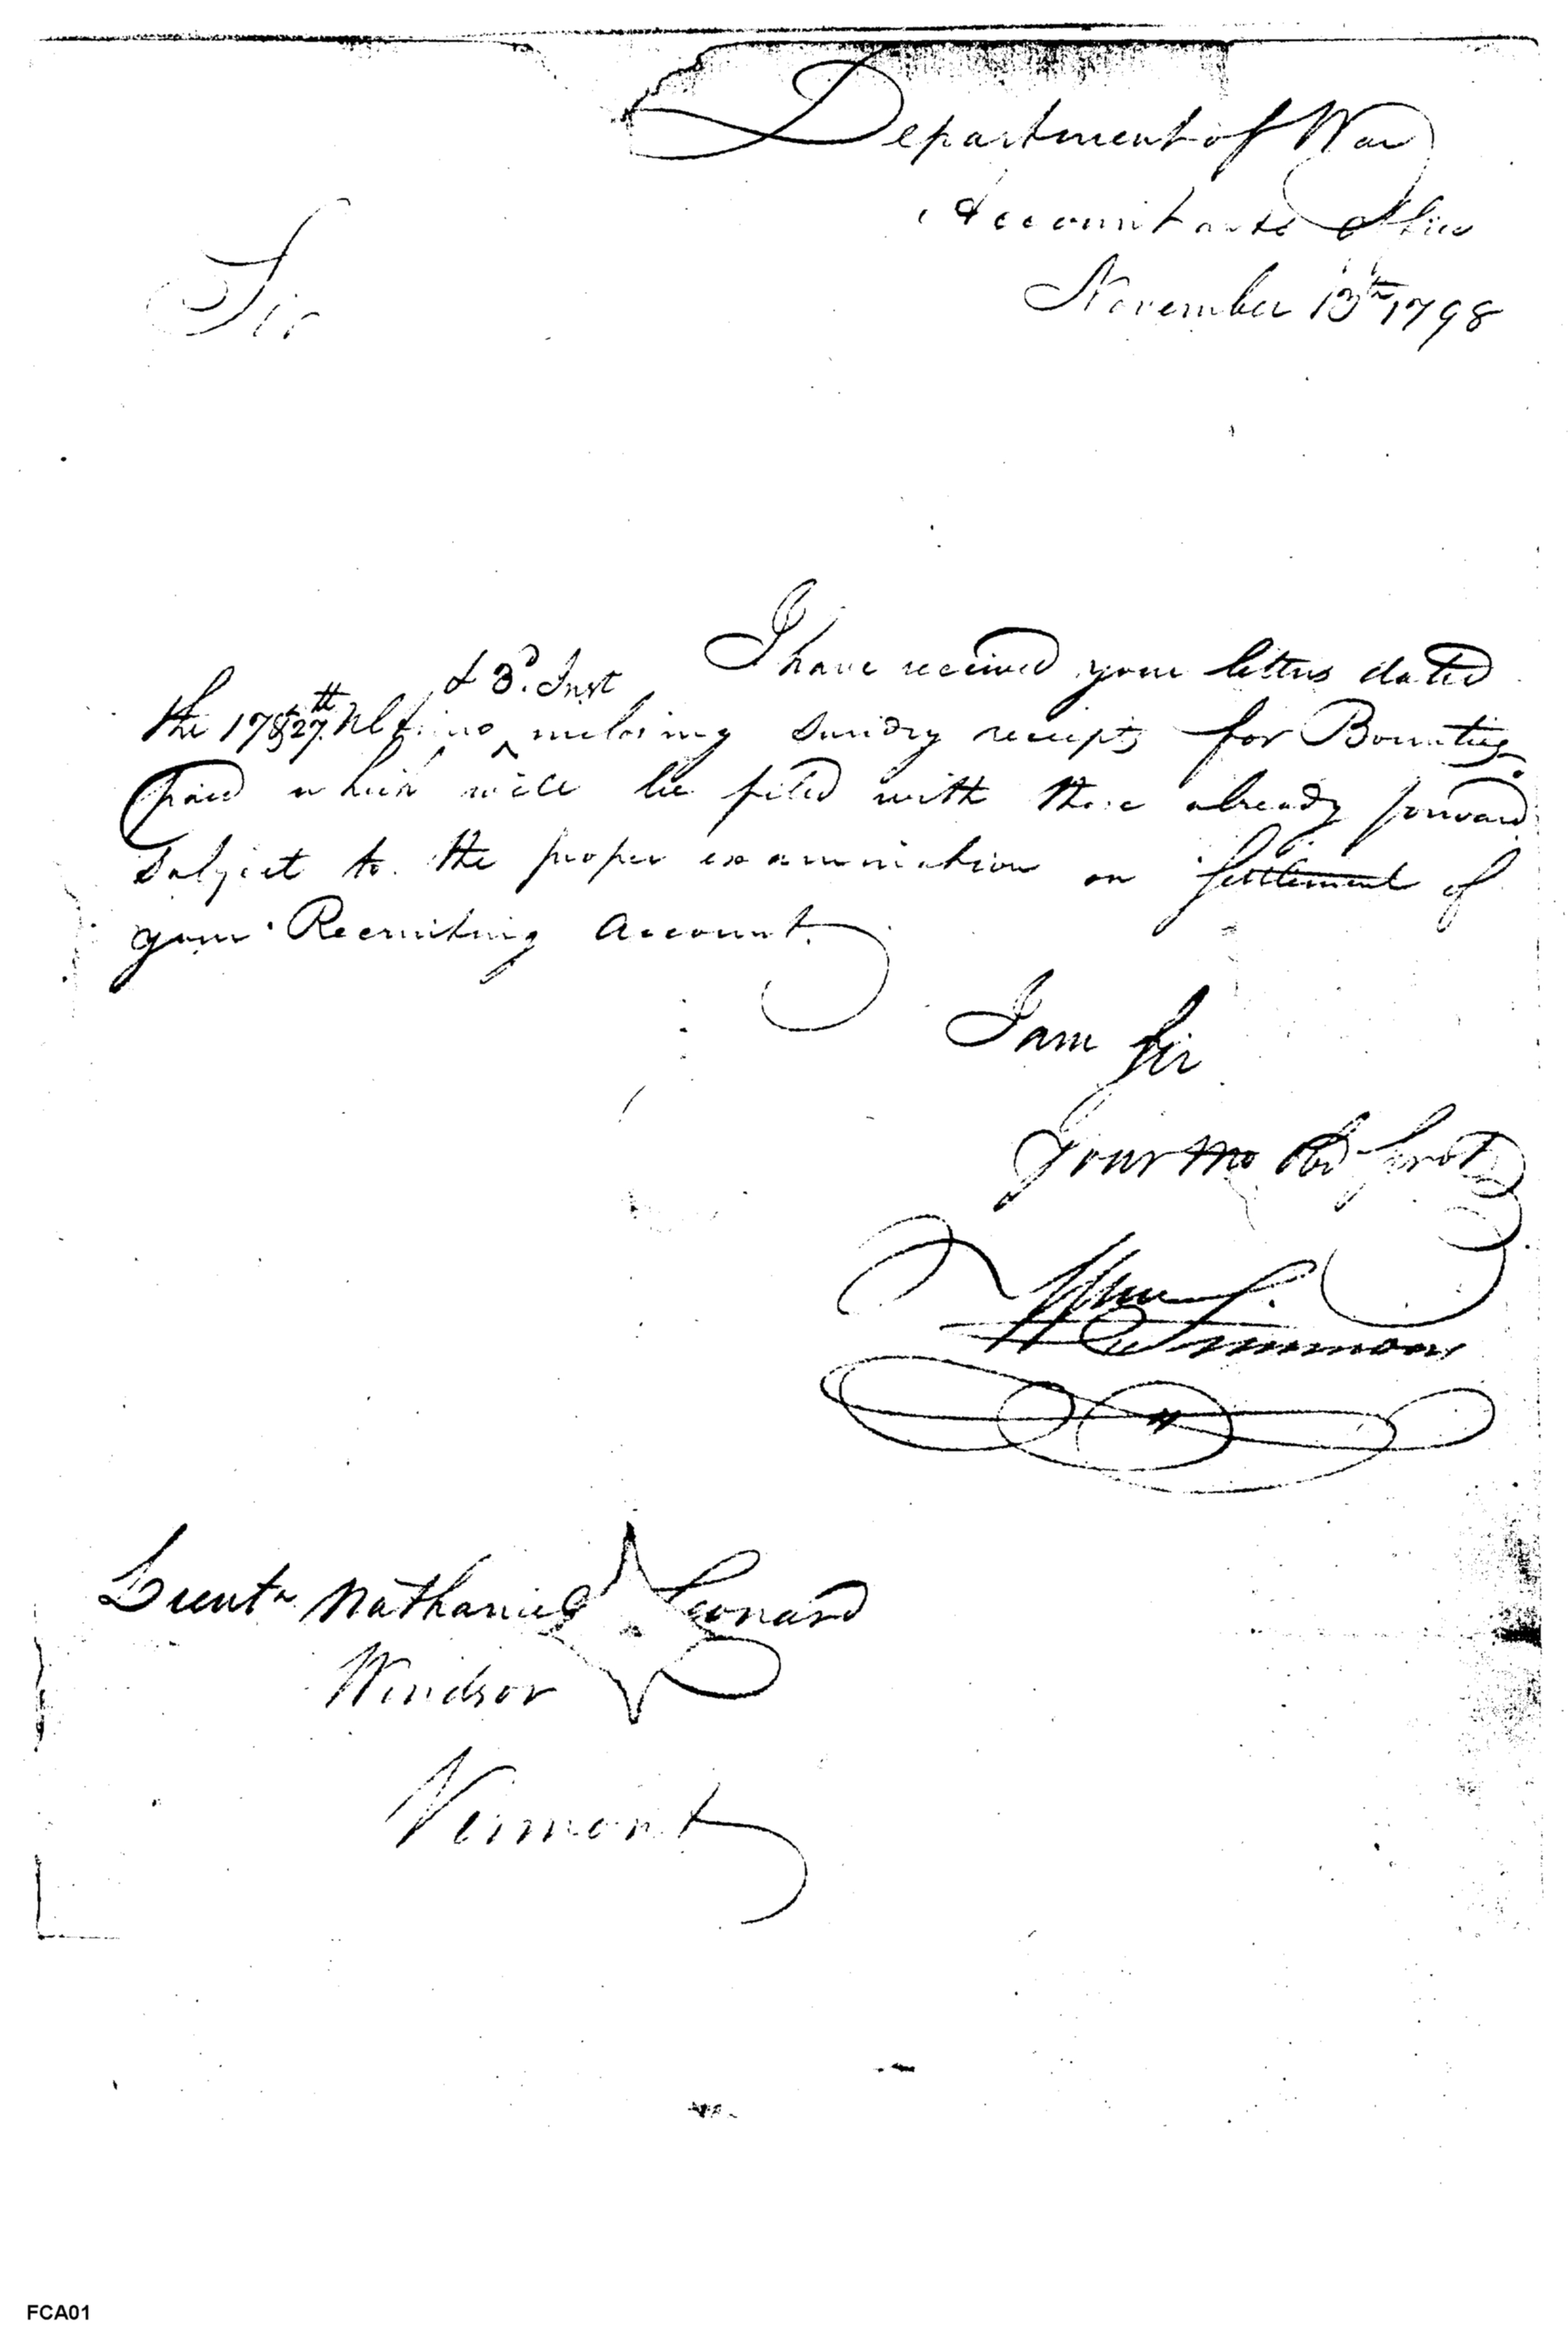 Department of War
Accountants Office
November 13th 1798
Sir
I have received your letters dated
& 3d. Inst
the 17th & 27th Ultimo ^ inclosing sundry receipts for Bounties
paid which will be filed with those already forward
subject to the proper examination on Settlement of
your Recruiting Account.
I am Sir
Your Mo Obd Servt
Wm Simmons
Lieutn Nathaniel Leonard
Windsor
Vermont
FCA01